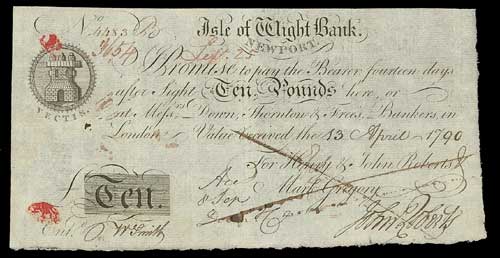 No 4483
Isle of Wight Bank.
NEWPORT.
I Promise to pay the Bearer fourteen days
after Sight Ten Pounds here, or
at Messrs Down, Thornton & Free's, Bankers, in
London. Value received the 13 April 1790
VECTIS.
For Henry & John Roberts &
Mark Gregory
£ Ten.
John Roberts
Entd. Wm Smith